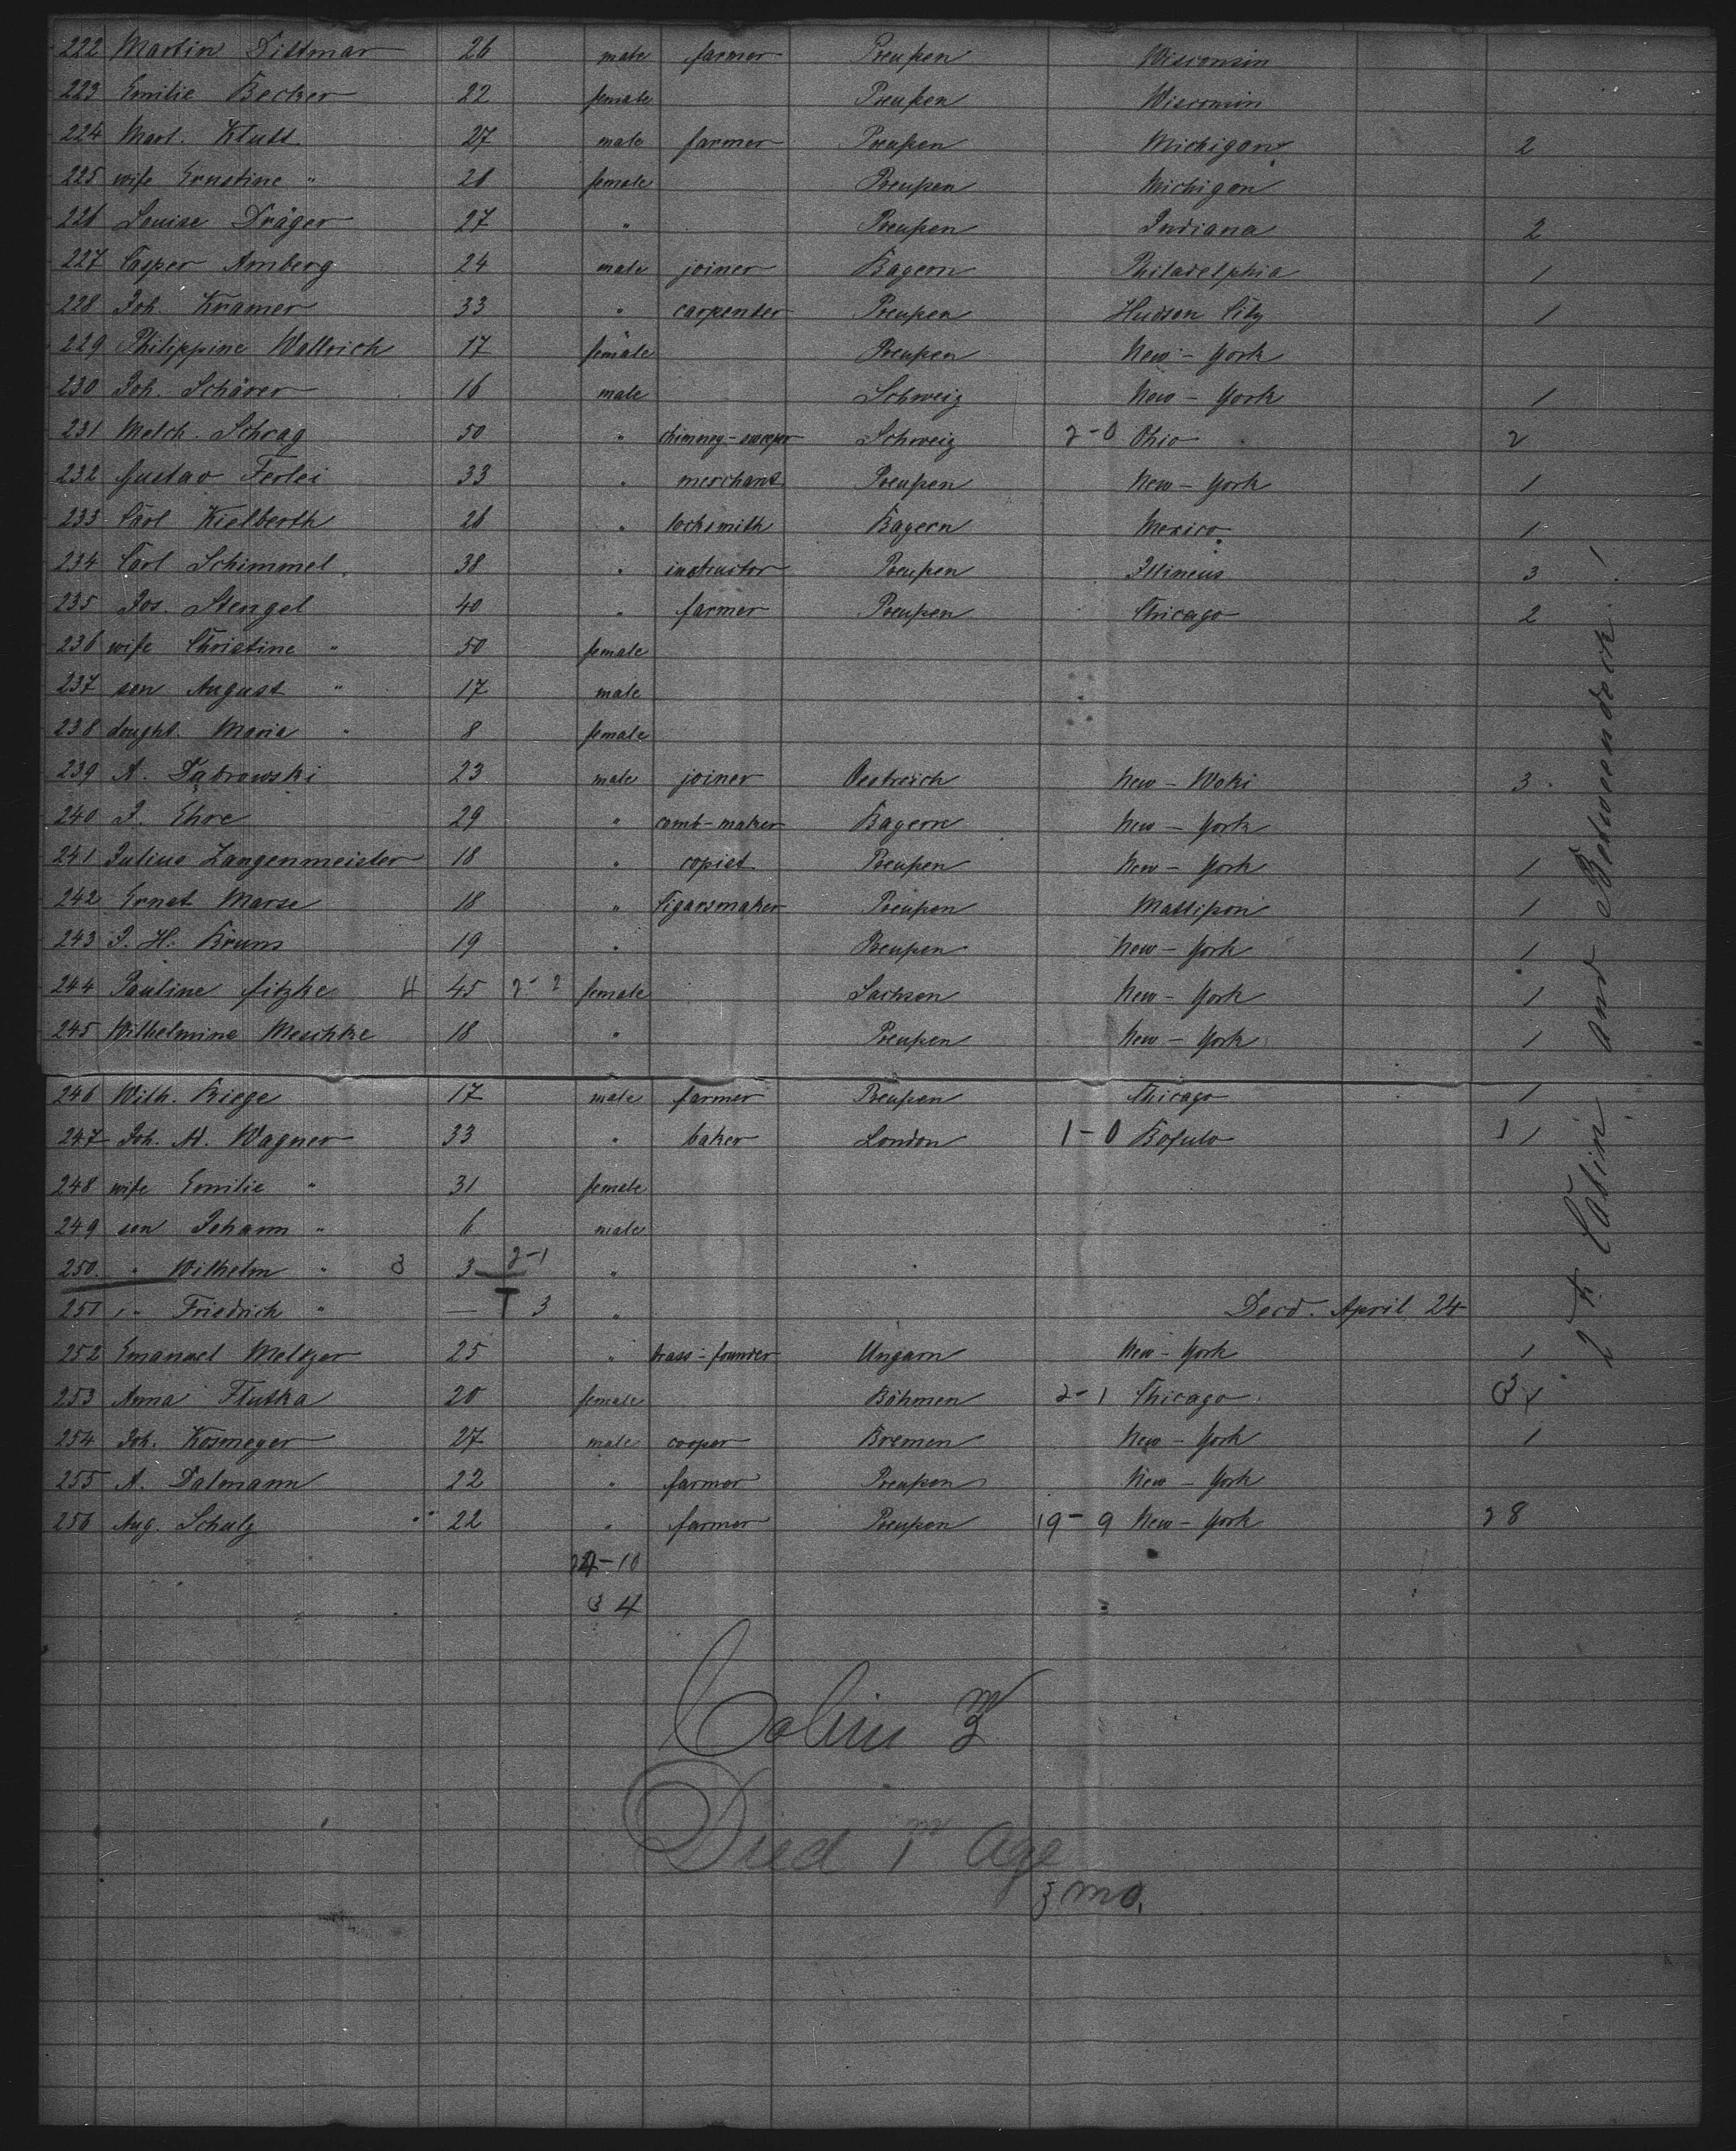 222 Martin Dittmar 26 male farmer Preußen Wisconsin
223 Emilie Becker 22 female Preußen Wisconsin
224 Mart. Klutt 27 male farmer Preußen Michigan 2
225 wife Ernstine " 28 female Preußen Michigan
226 Louise Dräger 27 " Preußen Indiana 2
227 Casper Amberg 24 male joiner Bayern Philadelphia 1
228 Joh. Kramer 33 " carpenter Preußen Hudson City 1
229 Philippine Wallrich 17 female Preußen New-York
230 Joh. Schärer 16 male Schweiz New-York 1
231 Melch. Schrag 50 " chimney-sweeper Schweiz 2-0 Ohio 2
232 Gustav Ferlei 33 " merchant Preußen New-York 1
233 Carl Kielberth 26 " locksmith Bayern Mexico 1
234 Carl Schimmel 38 " instructor Preußen Illineus 3
235 Jos. Stengel 40 " farmer Preußen Chicago 2
236 wife Christine " 50 female
237 son August " 17 male
238 dought. Maria " 8 female
239 A. Dąbrowski 23 male joiner Oestreich New-Yoki 3
240 J. Ehre 29 " comb-maker Bayern New-York
241 Julius Zangenmeister 18 " copist Preußen New-York 1
242 Ernst Marse 18 " Cigarsmaker Preußen Missipon 1
243 J. H. Brum 19 " Preußen New-York 1
244 Pauline Fitzke 4 45 2-2 female Sachsen New-York 1
245 Wilhelmine Meschke 18 " Preußen New-York 1
246 Wilh. Riege 17 male farmer Preußen Chicago 1
247 Joh. A. Wagner 33 " baker London 1-0 Bofulo 1 1
248 wife Emilie " 31 female
249 son Johann " 6 male
250 " Wilhelm " 3 3 2-1 "
251 " Friedrich " — 3 " Decd. April 24
252 Emanuel Meltzer 25 " brass-founder Ungarn New-York 1
253 Anna Flutka 20 female Böhmen 2-1 Chicago 3
254 Joh. Kosmeyer 27 male cooper Bremen New-York 1
255 A. Dalmann 22 " farmer Preußen New-York
256 Aug. Schulz 22 " farmer Preußen 19-9 New-York 28
24-10
34
2th Cabin and Betweendeck!
Cabin 3
Died 1m Age
3 mo.